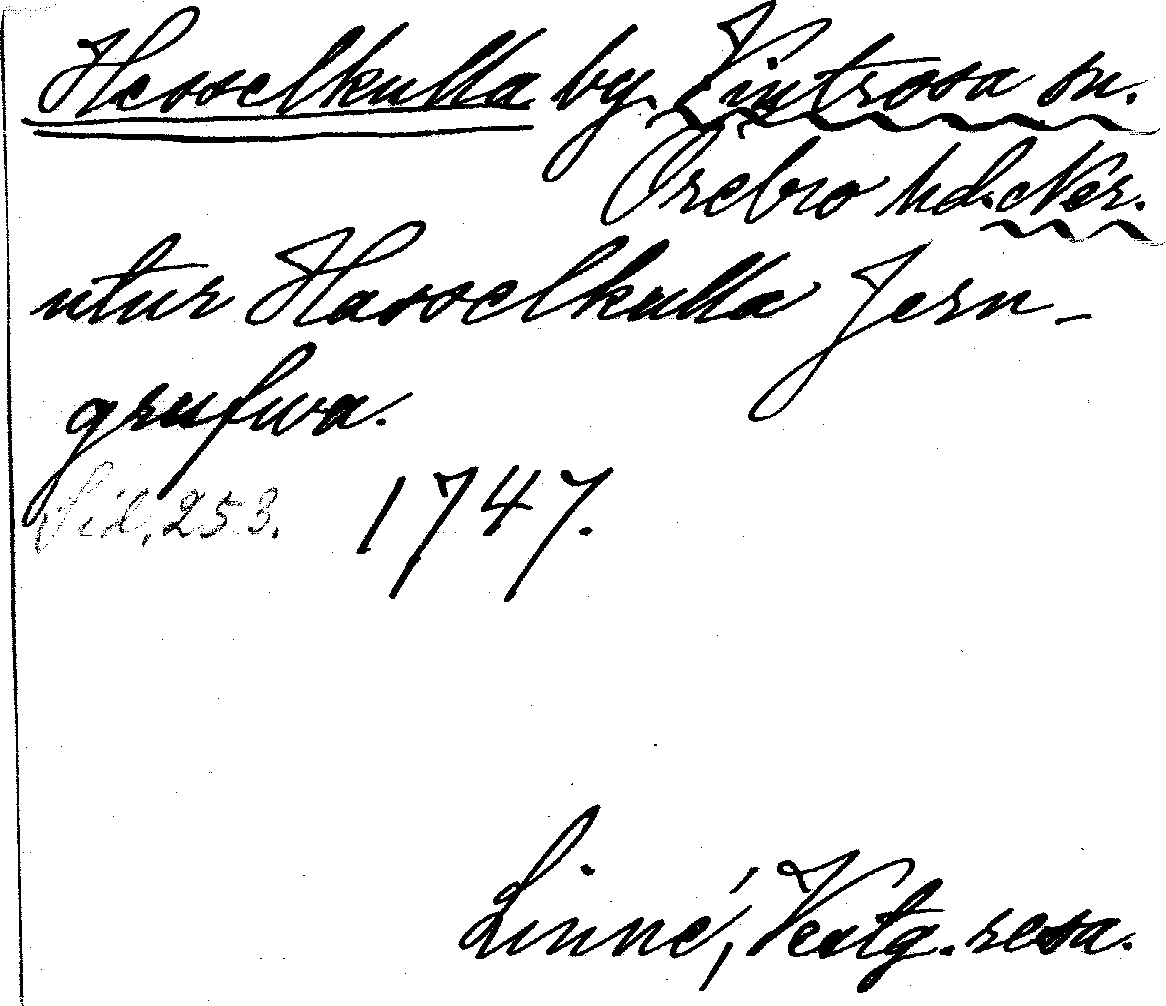 Hesselkulla by. Vintrosa sn.
Örebro hd. När.
utur Hasselkulla Jern-
grufwa.
Sid. 253. 1747.
Linné, Vestg. resa.